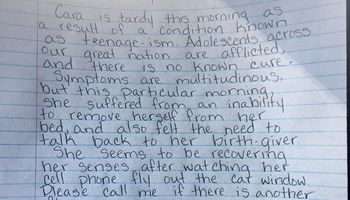 Cara is tardy this morning as
a result of a condition known
as teenage-ism. Adolescents across
our great nation are afflicted,
and there is no known cure.
Symptoms are multitudinous,
but this particular morning,
she suffered from an inability
to remove herself from her
bed, and also felt the need to
talk back to her birth-giver.
She seems to be recovering
her senses after watching her
cell phone fly out the car window.
Please call me if there is another